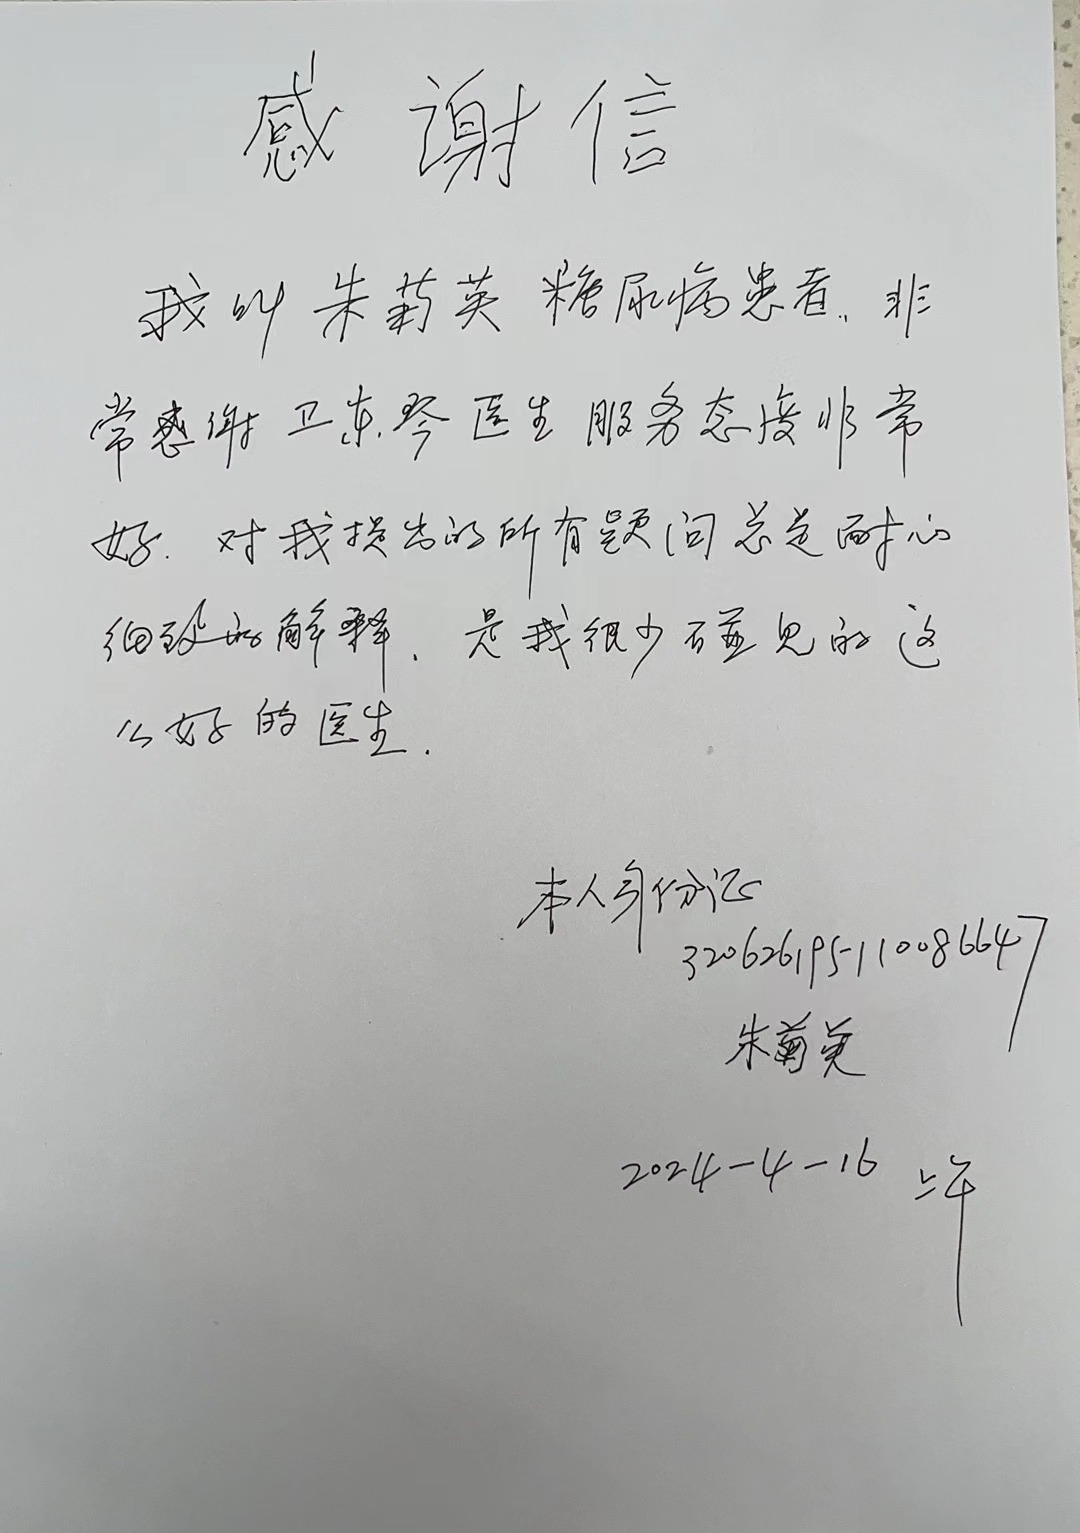 感谢信
我叫朱菊英糖尿病患者. 非
常感谢卫东琴医生服务态度非常
好. 对我提出的所有题问总是耐心
细致的解释. 是我很少碰见的这
么好的医生.
本人身份证
320626195110086647
朱菊英
2024-4-16 上午